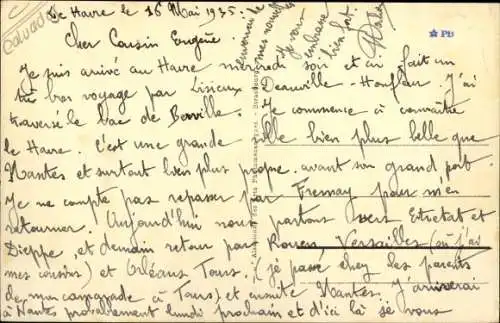 Le Havre le 16 Mai 1935.
Calvados
Cher Cousin Eugène.
PB
Je suis arrivé au Havre mercredi soir et ai fait un
très bon voyage par Lisieux Deauville - Honfleur. J'ai
traversé le bac de Berville. Je commence à connaître
le Havre. C'est une grande ville bien plus belle que
Nantes et surtout bien plus propre. avant son grand port.
Je ne compte pas repasser par Fresnay pour m'en
retourner. Aujourd'hui nous partons vers Etretat et
Dieppe, et demain retour par Rouen, Versailles (où j'ai
mes cousins) et Orléans Tours. (je passe chez les parents
de mon camarade à Tours) et ensuite Nantes. J'arriverai
à Nantes probablement lundi prochain et d'ici là je vous
mes nouvelles
Je vous
embrasse
bien fort.